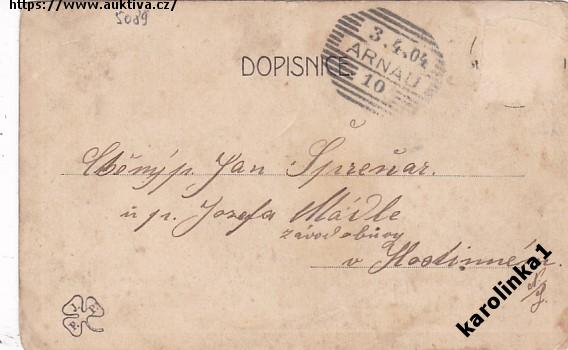 https://www.auktiva.cz/
5089
DOPISNICE
3.4.04
ARNAU
10
Ctěný p. Jan Špreňar.
u p. Josefa Mádle
závod obuvy
v Hostinném
karolinka1